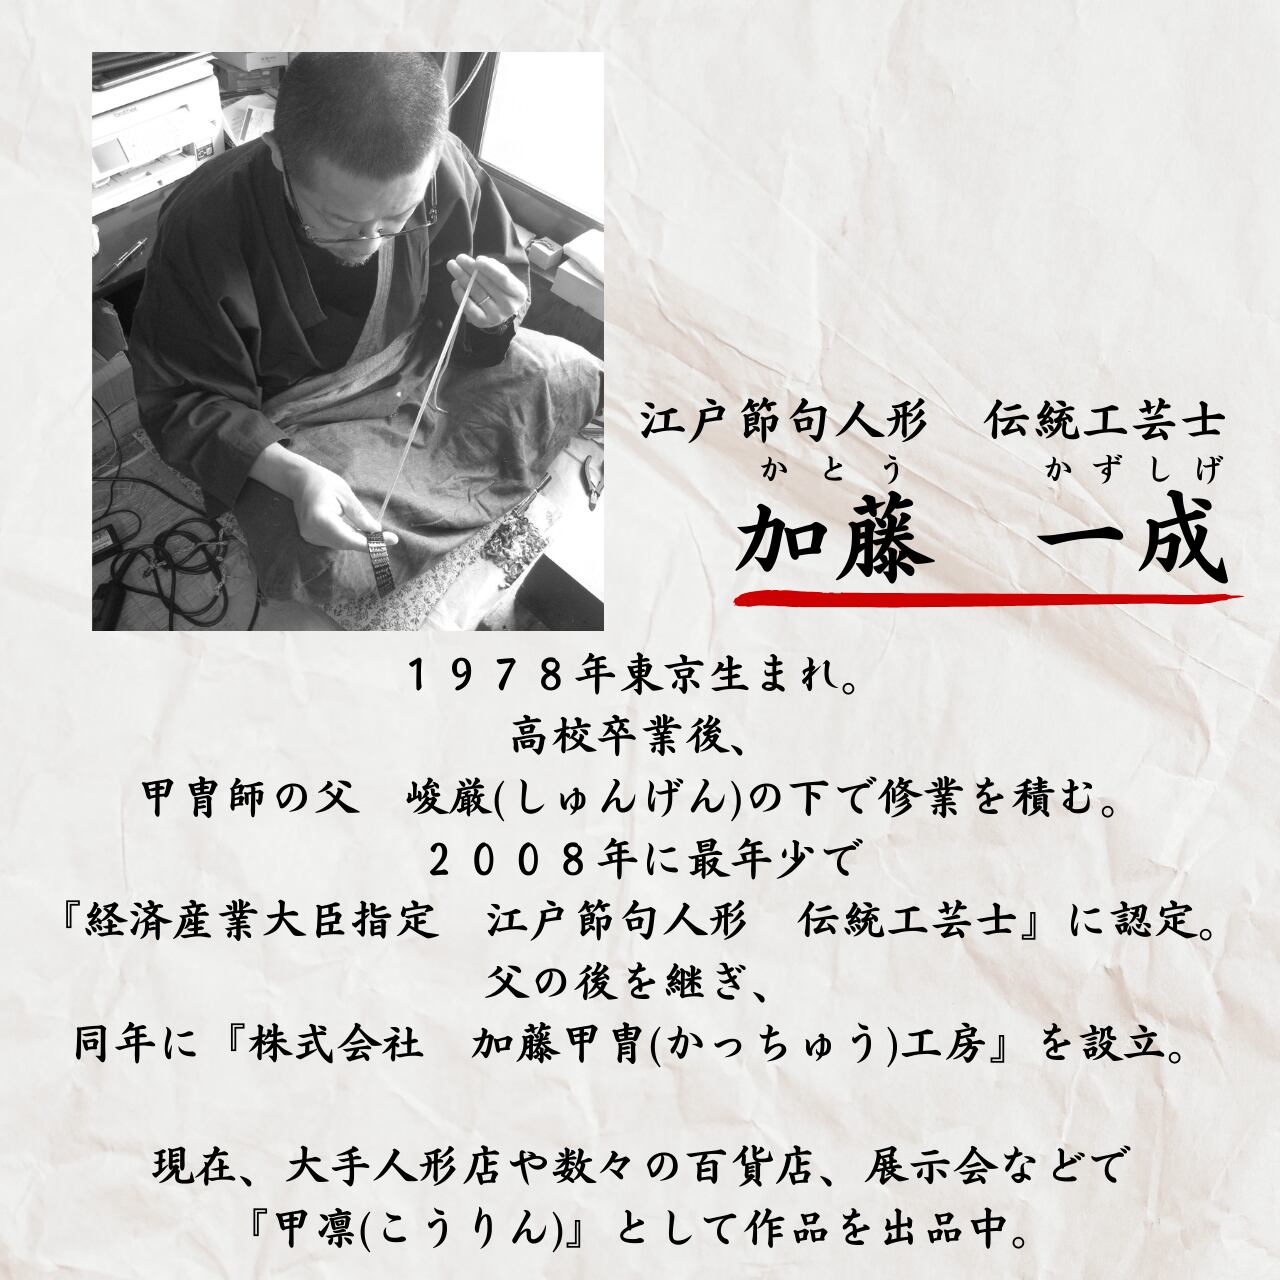 brother
江戸節句人形　伝統工芸士
かとう　かずしげ
加藤　一成
１９７８年東京生まれ。
高校卒業後、
甲冑師の父　峻厳(しゅんげん)の下で修業を積む。
２００８年に最年少で
『経済産業大臣指定　江戸節句人形　伝統工芸士』に認定。
父の後を継ぎ、
同年に『株式会社　加藤甲冑(かっちゅう)工房』を設立。
現在、大手人形店や数々の百貨店、展示会などで
『甲凛(こうりん)』として作品を出品中。